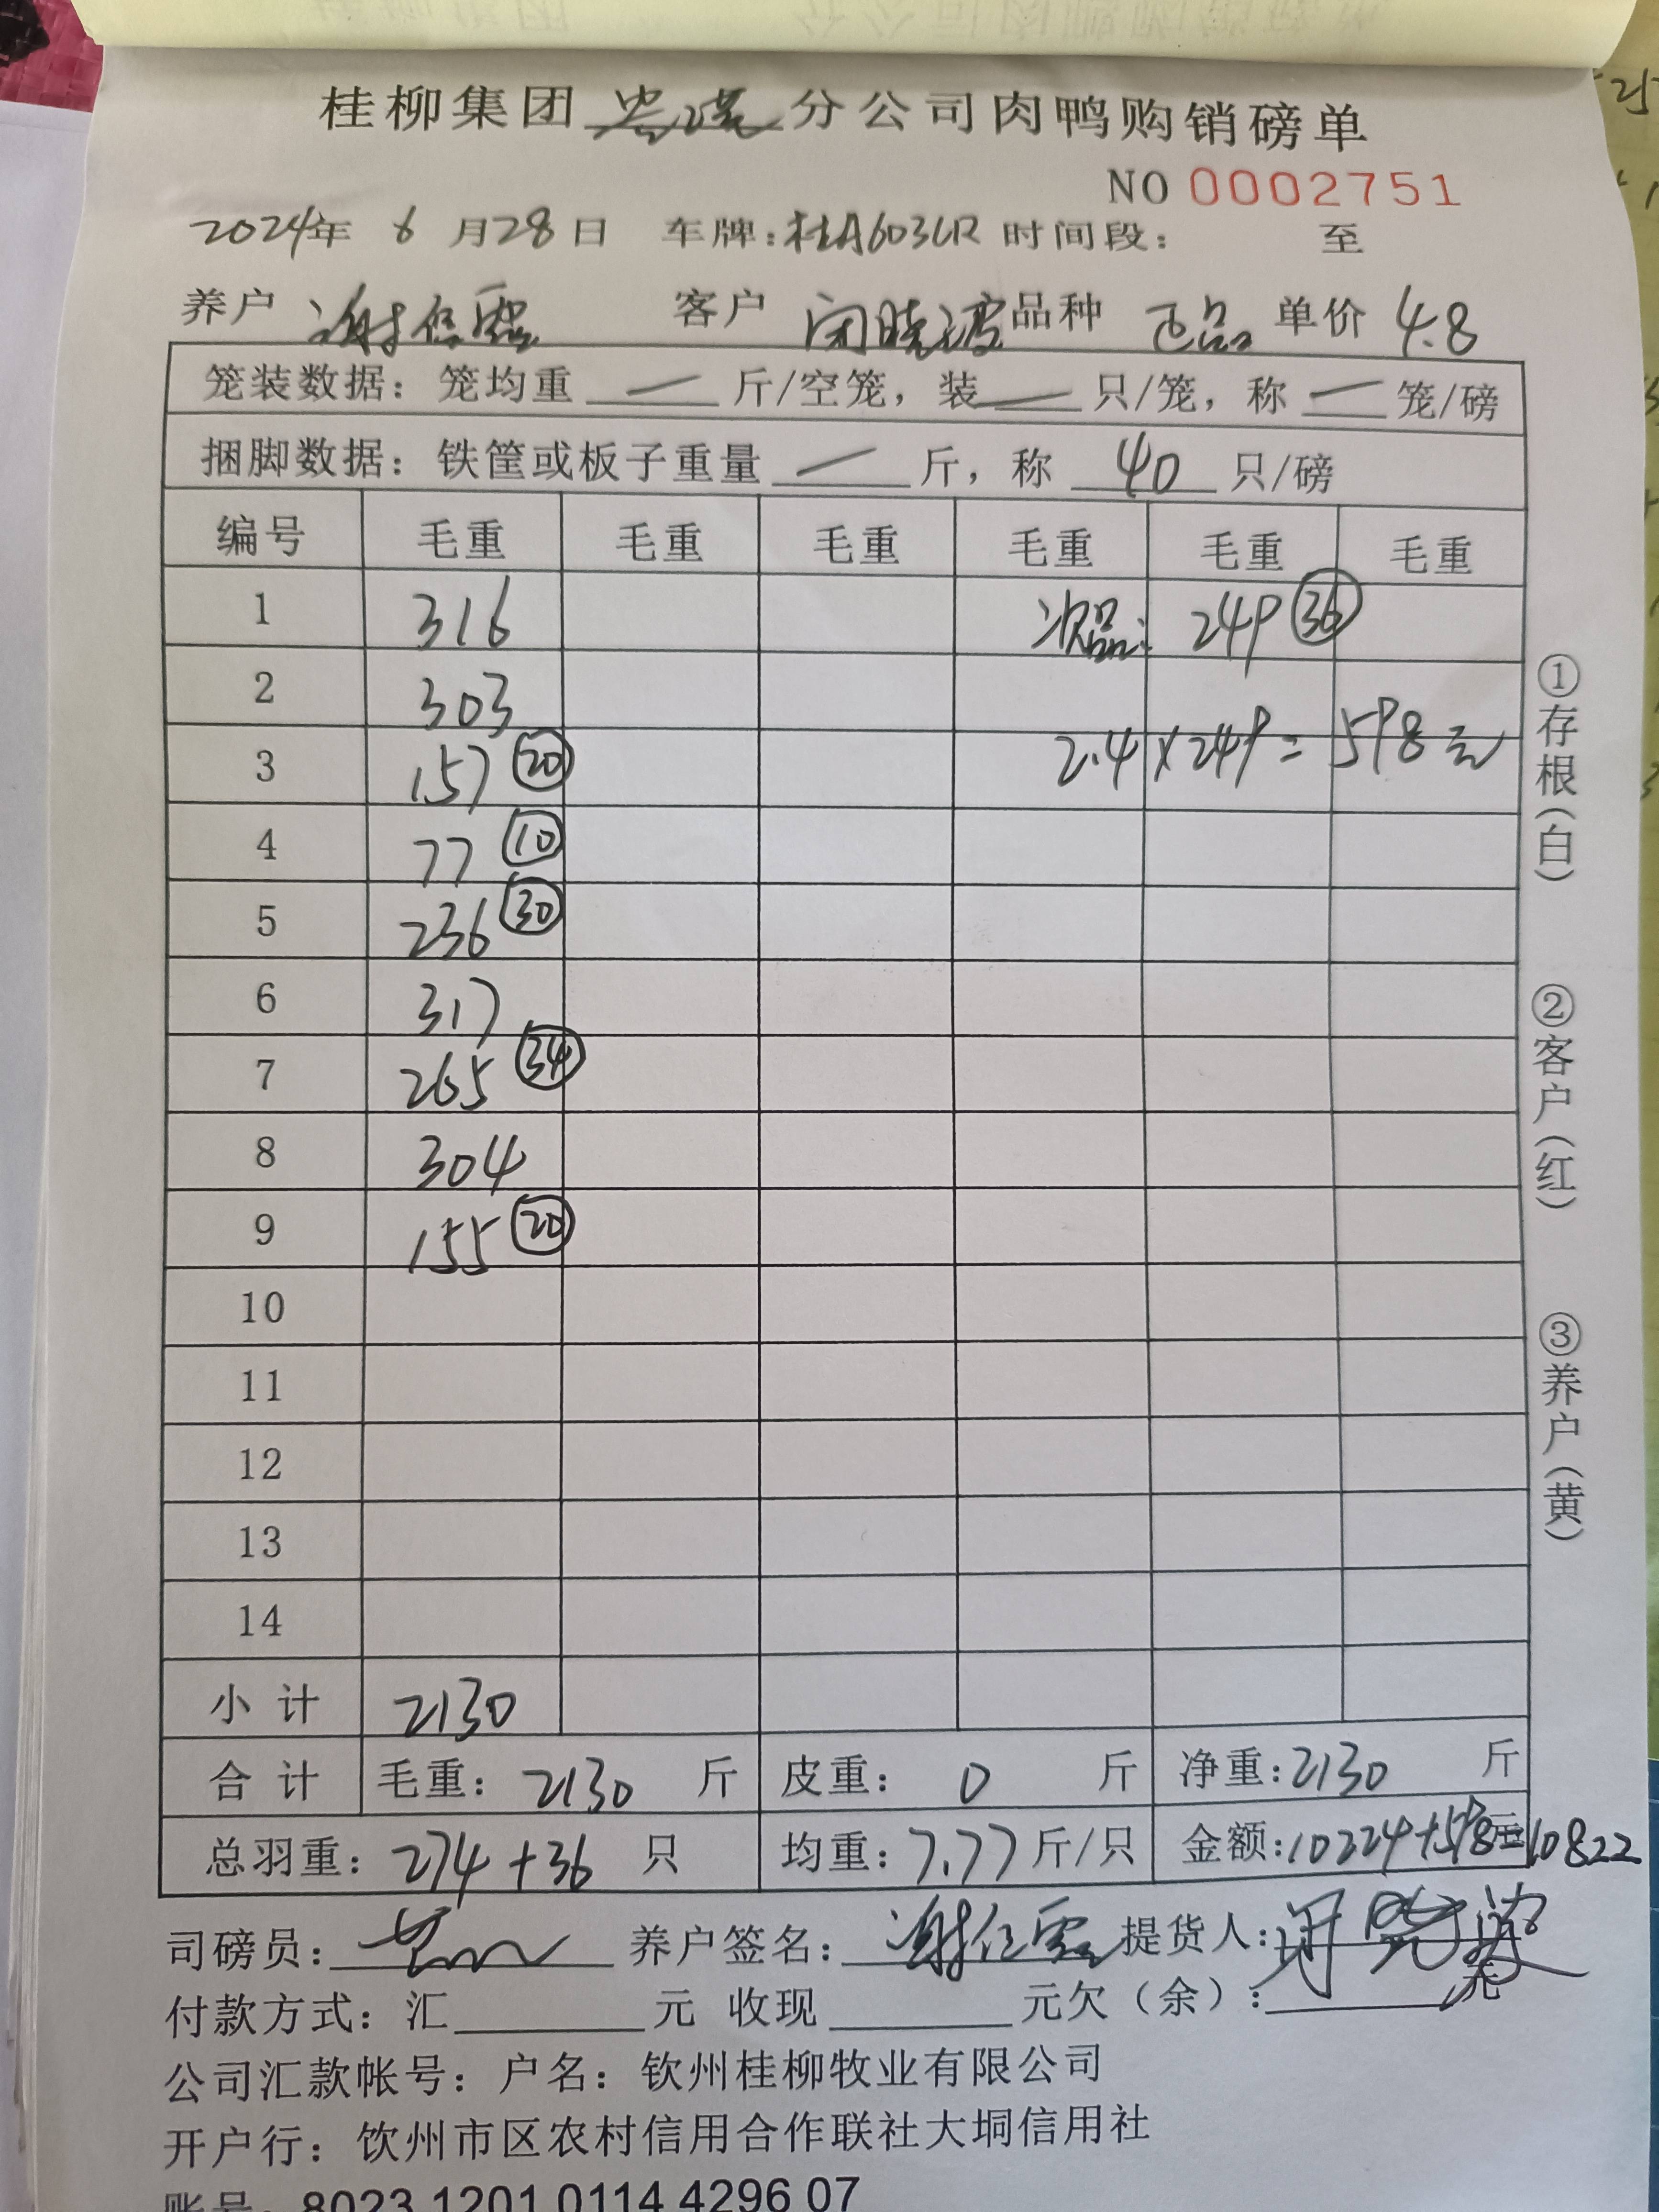 桂柳集团 分公司肉鸭购销磅单
NO 0002751
2024年 6 月28日 车牌:桂A603LR 时间段: 至
养户 谢信露 客户 闭晓波 品种 正品 单价 4.8
笼装数据: 笼均重 — 斤/空笼, 装 — 只/笼, 称 — 笼/磅
捆脚数据: 铁筐或板子重量 — 斤, 称 40 只/磅
编号 毛重 毛重 毛重 毛重 毛重 毛重
1 316 次品: 249 36
2 303
3 157 20 2.4×249=598元
4 77 10
5 236 30
6 317
7 265 34
8 304
9 155 20
10
11
12
13
14
小 计 2130
合 计 毛重: 2130 斤 皮重: 0 斤 净重:2130 斤
总羽重: 274+36 只 均重: 7.77斤/只 金额:10224+598元=10822
司磅员: 养户签名: 谢信露 提货人: 闭晓波
付款方式: 汇 元 收现 元欠(余): 元
公司汇款帐号: 户名: 钦州桂柳牧业有限公司
开户行: 钦州市区农村信用合作联社大垌信用社
账号: 8023 1201 0114 4296 07
①存根(白)
②客户(红)
③养户(黄)